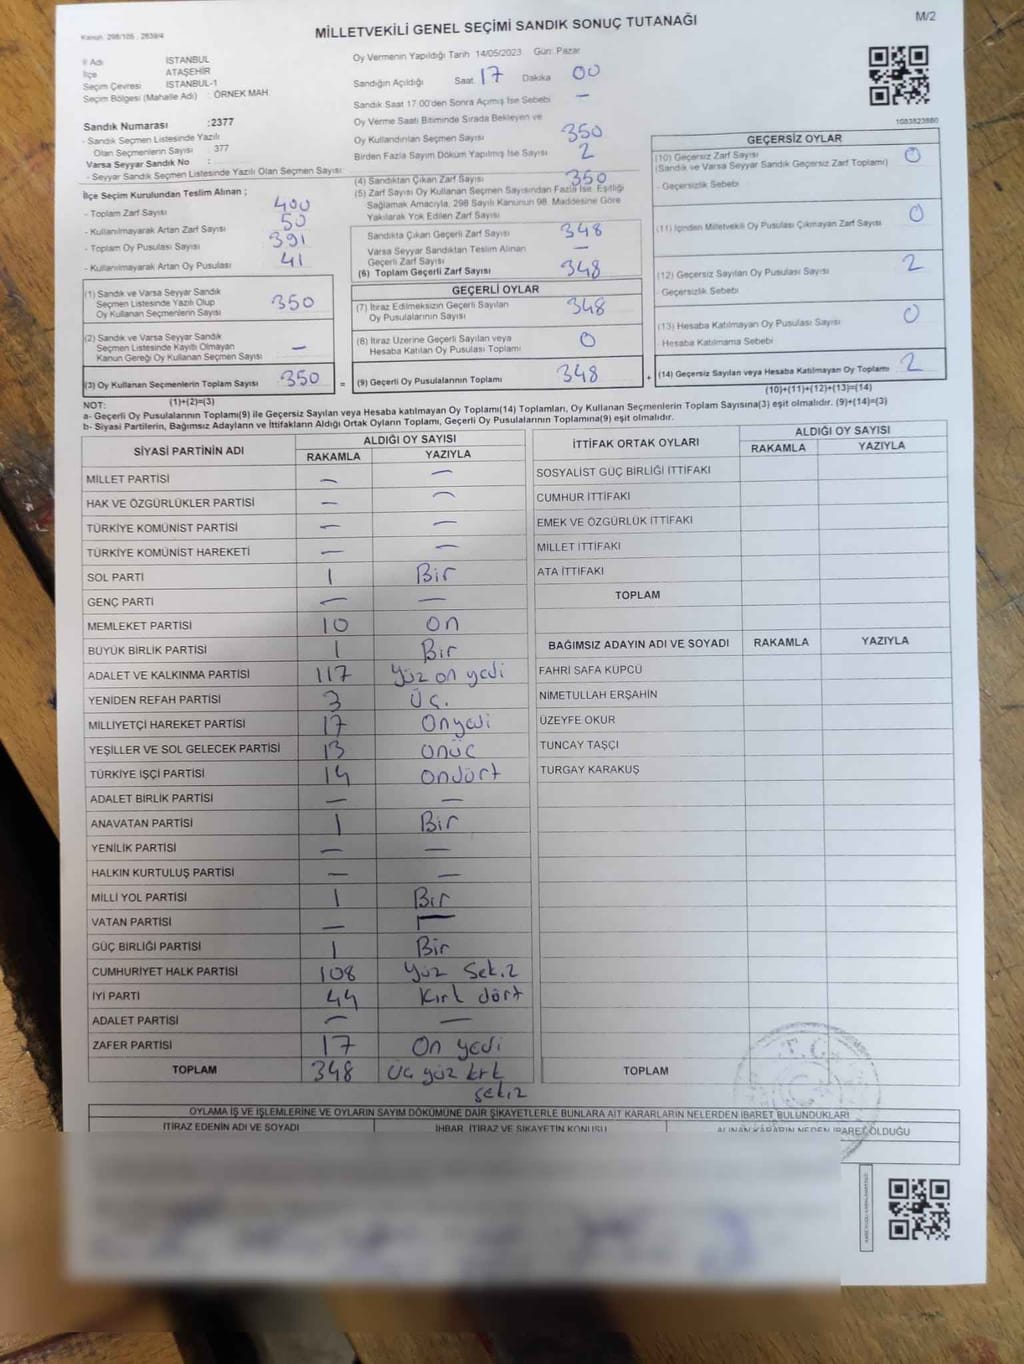 Kanun: 298/105 : 2839/4
MİLLETVEKİLİ GENEL SEÇİMİ SANDIK SONUÇ TUTANAĞI
M/2
İl Adı : İSTANBUL
İlçe : ATAŞEHİR
Seçim Çevresi : İSTANBUL-1
Seçim Bölgesi (Mahalle Adı) : ÖRNEK MAH
Sandık Numarası :2377
- Sandık Seçmen Listesinde Yazılı
Olan Seçmenlerin Sayısı : 377
Varsa Seyyar Sandık No :
- Seyyar Sandık Seçmen Listesinde Yazılı Olan Seçmen Sayısı :
İlçe Seçim Kurulundan Teslim Alınan ;
- Toplam Zarf Sayısı 400
- Kullanılmayarak Artan Zarf Sayısı 50
- Toplam Oy Pusulası Sayısı 391
- Kullanılmayarak Artan Oy Pusulası 41
(1) Sandık ve Varsa Seyyar Sandık
Seçmen Listesinde Yazılı Olup
Oy Kullanan Seçmenlerin Sayısı 350
(2) Sandık ve Varsa Seyyar Sandık
Seçmen Listesinde Kayıtlı Olmayan
Kanun Gereği Oy Kullanan Seçmen Sayısı —
(3) Oy Kullanan Seçmenlerin Toplam Sayısı 350
(1)+(2)=(3)
Oy Vermenin Yapıldığı Tarih 14/05/2023 Gün: Pazar
Sandığın Açıldığı Saat 17 Dakika 00
Sandık Saat 17:00'den Sonra Açılmış İse Sebebi —
Oy Verme Saati Bitiminde Sırada Bekleyen ve
Oy Kullandırılan Seçmen Sayısı 350
Birden Fazla Sayım Döküm Yapılmış İse Sayısı 2
(4) Sandıktan Çıkan Zarf Sayısı 350
(5) Zarf Sayısı Oy Kullanan Seçmen Sayısından Fazla İse, Eşitliği
Sağlamak Amacıyla, 298 Sayılı Kanunun 98. Maddesine Göre
Yakılarak Yok Edilen Zarf Sayısı
Sandıkta Çıkan Geçerli Zarf Sayısı 348
Varsa Seyyar Sandıktan Teslim Alınan
Geçerli Zarf Sayısı —
(6) Toplam Geçerli Zarf Sayısı 348
GEÇERLİ OYLAR
(7) İtiraz Edilmeksizin Geçerli Sayılan
Oy Pusulalarının Sayısı 348
(8) İtiraz Üzerine Geçerli Sayılan veya
Hesaba Katılan Oy Pusulası Toplamı 0
= (9) Geçerli Oy Pusulalarının Toplamı 348
1083823880
GEÇERSİZ OYLAR
(10) Geçersiz Zarf Sayısı 0
(Sandık ve Varsa Seyyar Sandık Geçersiz Zarf Toplamı)
- Geçersizlik Sebebi
(11) İçinden Milletvekili Oy Pusulası Çıkmayan Zarf Sayısı 0
(12) Geçersiz Sayılan Oy Pusulası Sayısı 2
Geçersizlik Sebebi
(13) Hesaba Katılmayan Oy Pusulası Sayısı 0
Hesaba Katılmama Sebebi
+ (14) Geçersiz Sayılan veya Hesaba Katılmayan Oy Toplamı 2
(10)+(11)+(12)+(13)=(14)
NOT:
a- Geçerli Oy Pusulalarının Toplamı(9) ile Geçersiz Sayılan veya Hesaba katılmayan Oy Toplamı(14) Toplamları, Oy Kullanan Seçmenlerin Toplam Sayısına(3) eşit olmalıdır. (9)+(14)=(3)
b- Siyasi Partilerin, Bağımsız Adayların ve İttifakların Aldığı Ortak Oyların Toplamı, Geçerli Oy Pusulalarının Toplamına(9) eşit olmalıdır.
SİYASİ PARTİNİN ADI ALDIĞI OY SAYISI
RAKAMLA YAZIYLA
MİLLET PARTİSİ — —
HAK VE ÖZGÜRLÜKLER PARTİSİ — —
TÜRKİYE KOMÜNİST PARTİSİ — —
TÜRKİYE KOMÜNİST HAREKETİ — —
SOL PARTİ 1 Bir
GENÇ PARTİ — —
MEMLEKET PARTİSİ 10 on
BÜYÜK BİRLİK PARTİSİ 1 Bir
ADALET VE KALKINMA PARTİSİ 117 Yüz on yedi
YENİDEN REFAH PARTİSİ 3 Üç.
MİLLİYETÇİ HAREKET PARTİSİ 17 Onyedi
YEŞİLLER VE SOL GELECEK PARTİSİ 13 onüç
TÜRKİYE İŞÇİ PARTİSİ 14 ondört
ADALET BİRLİK PARTİSİ — —
ANAVATAN PARTİSİ 1 Bir
YENİLİK PARTİSİ — —
HALKIN KURTULUŞ PARTİSİ — —
MİLLİ YOL PARTİSİ 1 Bir
VATAN PARTİSİ — —
GÜÇ BİRLİĞİ PARTİSİ 1 Bir
CUMHURİYET HALK PARTİSİ 108 Yüz Sekiz
İYİ PARTİ 44 Kırk dört
ADALET PARTİSİ — —
ZAFER PARTİSİ 17 On yedi
TOPLAM 348 Üç yüz kırk
sekiz
İTTİFAK ORTAK OYLARI ALDIĞI OY SAYISI
RAKAMLA YAZIYLA
SOSYALİST GÜÇ BİRLİĞİ İTTİFAKI
CUMHUR İTTİFAKI
EMEK VE ÖZGÜRLÜK İTTİFAKI
MİLLET İTTİFAKI
ATA İTTİFAKI
TOPLAM
BAĞIMSIZ ADAYIN ADI VE SOYADI RAKAMLA YAZIYLA
FAHRİ SAFA KÜPCÜ
NİMETULLAH ERŞAHİN
ÜZEYFE OKUR
TUNCAY TAŞÇI
TURGAY KARAKUŞ
TOPLAM
T.C.
OYLAMA İŞ VE İŞLEMLERİNE VE OYLARIN SAYIM DÖKÜMÜNE DAİR ŞİKAYETLERLE BUNLARA AİT KARARLARIN NELERDEN İBARET BULUNDUKLARI
İTİRAZ EDENİN ADI VE SOYADI İHBAR, İTİRAZ VE ŞİKAYETİN KONUSU ALINAN KARARIN NEDEN İBARET OLDUĞU